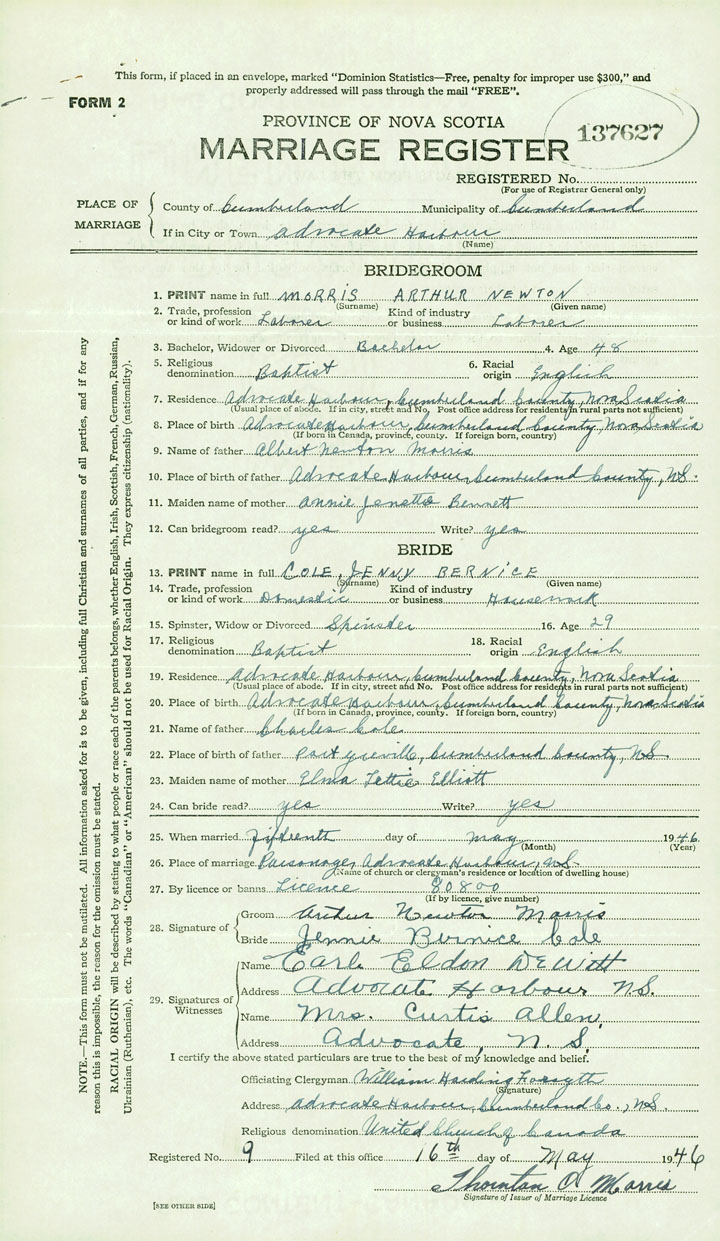 This form, if placed in an envelope, marked "Dominion Statistics—Free, penalty for improper use $300," and
properly addressed will pass through the mail "FREE".
FORM 2
137627
PROVINCE OF NOVA SCOTIA
MARRIAGE REGISTER
REGISTERED No.
(For use of Registrar General only)
PLACE OF MARRIAGE
County of Cumberland Municipality of Cumberland
If in City or Town Advocate Harbour
(Name)
BRIDEGROOM
1. PRINT name in full MORRIS ARTHUR NEWTON
(Surname) (Given name)
2. Trade, profession or kind of work Laborer Kind of industry or business Laborer
3. Bachelor, Widower or Divorced Bachelor 4. Age 48
5. Religious denomination Baptist 6. Racial origin English
7. Residence Advocate Harbour, Cumberland County, Nova Scotia
(Usual place of abode. If in city, street and No. Post office address for residents in rural parts not sufficient)
8. Place of birth Advocate Harbour, Cumberland County, Nova Scotia
(If born in Canada, province, county. If foreign born, country)
9. Name of father Albert Newton Morris
10. Place of birth of father Advocate Harbour, Cumberland County, N.S.
11. Maiden name of mother Annie Jenetta Bennett
12. Can bridegroom read? yes Write? yes
BRIDE
13. PRINT name in full COLE, JENNY BERNICE
(Surname) (Given name)
14. Trade, profession or kind of work Domestic Kind of industry or business Housework
15. Spinster, Widow or Divorced Spinster 16. Age 29
17. Religious denomination Baptist 18. Racial origin English
19. Residence Advocate Harbour, Cumberland County, Nova Scotia
(Usual place of abode. If in city, street and No. Post office address for residents in rural parts not sufficient)
20. Place of birth Advocate Harbour, Cumberland County, Nova Scotia
(If born in Canada, province, county. If foreign born, country)
21. Name of father Charles Cole
22. Place of birth of father Port Greville, Cumberland County, N.S.
23. Maiden name of mother Elma Lettie Elliott
24. Can bride read? yes Write? yes
25. When married Fifteenth day of May 1946
(Month) (Year)
26. Place of marriage Parsonage, Advocate Harbour, N.S.
(Name of church or clergyman's residence or location of dwelling house)
27. By licence or banns Licence 80800
(If by licence, give number)
28. Signature of
Groom Arthur Newton Morris
Bride Jennie Bernice Cole
29. Signatures of Witnesses
Name Earle Eldon DeWitt
Address Advocate Harbour N.S.
Name Mrs. Curtis Allen,
Address Advocate, N.S.
I certify the above stated particulars are true to the best of my knowledge and belief.
Officiating Clergyman William Harding Forsyth
(Signature)
Address Advocate Harbour, Cumberland Co., N.S.
Religious denomination United Church of Canada
Registered No. 9 Filed at this office 16th day of May 1946
Thornton O. Morris
Signature of Issuer of Marriage Licence
[SEE OTHER SIDE]
NOTE.—This form must not be mutilated. All information asked for is to be given, including full Christian and surnames of all parties, and if for any
reason this is impossible, the reason for the omission must be stated.
RACIAL ORIGIN will be described by stating to what people or race each of the parents belongs, whether English, Irish, Scottish, French, German, Russian,
Ukrainian (Ruthenian), etc. The words "Canadian" or "American" should not be used for Racial Origin. They express citizenship (nationality).